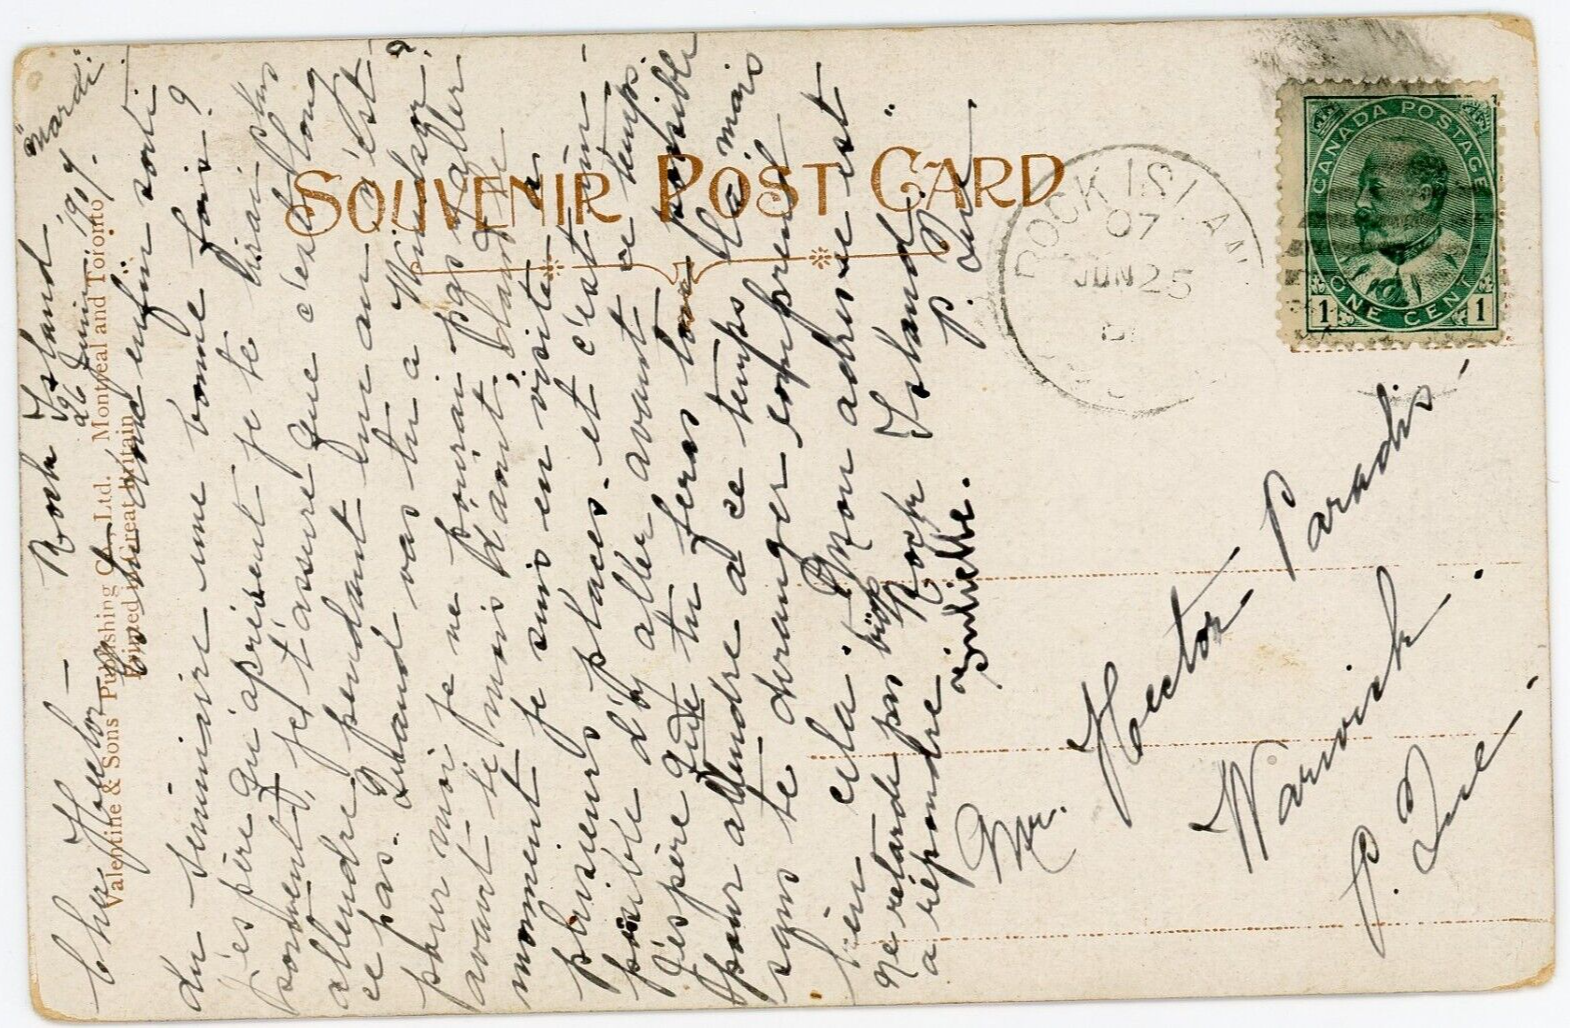 SOUVENIR POST CARD
Valentine & Sons Publishing Co., Ltd. Montreal and Toronto
Printed in Great Britain
ROCK ISLAN
07
JUN 25
CANADA POSTAGE
1 ONE CENT 1
Rock Island
"Mardi"
26 Juin, 1907.
Cher Hector –
Es-tu donc enfin sorti
du seminaire une bonne fois?
J'espère qu'aprèsent je te lirai plus
souvent, je t'assure que c'est long
attendre pendant un an n'est-
ce pas. Quand vas tu a Windsor?
pour moi je ne pourai pas y aller
avant le mois d'aout,
moment je suis en visite a
plusieurs places. et c'est im-
possible d'y aller avant ce temps.
J'espère que tu feras ton possible
pour attendre a ce temps la mais
sans te déranger comprend
bien cela. Mon adresse est
Rock Island.
P. Que
Ne retarde pas
a répondre
Juliette.
Mr. Hector Paradis –
Warwick.
P. Que.